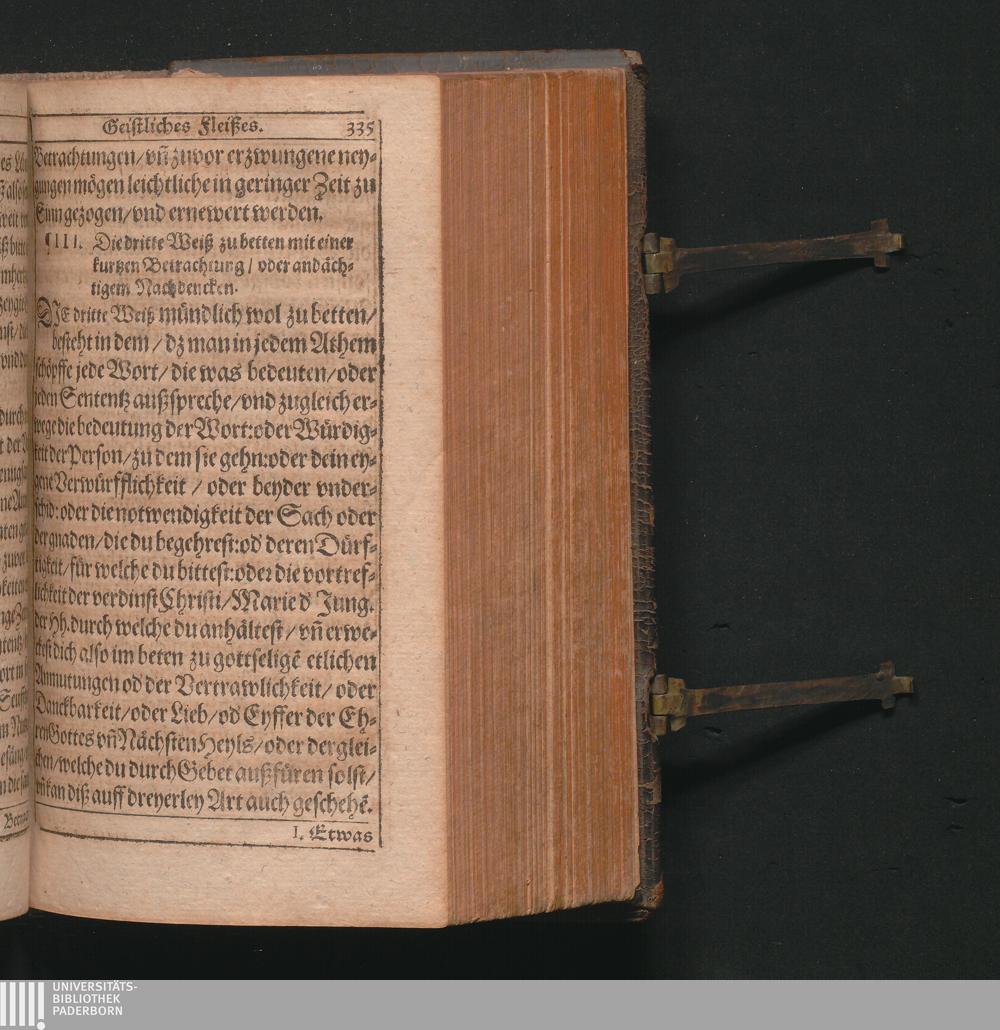 Geistliches Fleißes. 335
Betrachtungen/ vñ zuvor erzwungene ney-
gungen mögen leichtliche in geringer Zeit zu
Sinn gezogen/ vnd ernewert werden.
¶III. Die dritte Weiß zu betten mit einer
kurtzen Betrachtung / oder andäch-
tigem Nachdencken.
DIE dritte Weiß mündlich wol zu betten/
besteht in dem / dz man in jedem Athem
schöpffe jede Wort/ die was bedeuten/ oder
jeden Sententz außspreche/ vnd zugleich er-
wege die bedeutung der Wort: oder Würdig-
keit der Person/ zu dem sie gehn: oder dein ey-
gene Verwürfflichkeit / oder beyder vnder-
schid: oder die notwendigkeit der Sach oder
der gnaden/ die du begehrest: od' deren Dürf-
tigkeit/ für welche du bittest: oder die vortref-
lichkeit der verdinst Christi/ Marie d' Jung.
der Hh. durch welche du anhältest/ vñ erwe-
ckest dich also im beten zu gottseligẽ etlichen
Anmutungen od der Vertrawlichkeit/ oder
Danckbarkeit/ oder Lieb/ od' Eyffer der Eh-
ren Gottes vñ Nächsten Heyls/ oder derglei-
chen/ welche du durch Gebet außfüren solst/
vñ kan diß auff dreyerley Art auch geschehẽ.
I. Etwas
UNIVERSITÄTS-
BIBLIOTHEK
PADERBORN